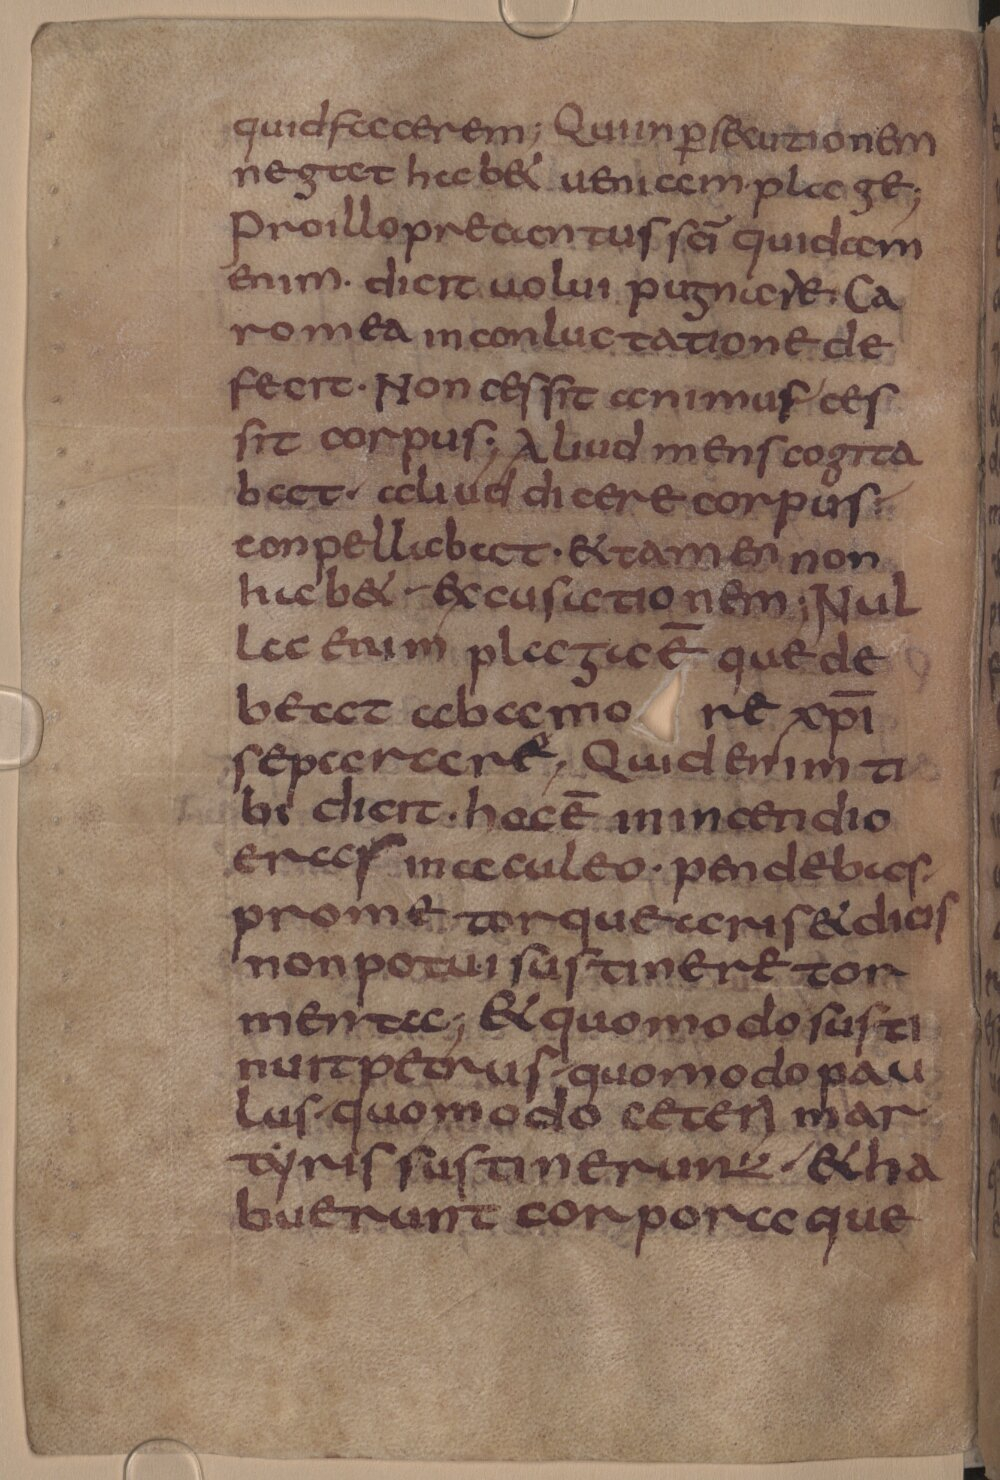 quid facerem; Qui in p̱secutionem
negat habet ueniam plage;
Pro illo precantus sc̄i quidam
enim. dicit uolui pugnare. Ca
ro mea in conluctatione de
fecit. Non cessit animus ces
sit corpus; Aliud mens cogita
bat. aliud dicere corpus
conpellabat. & tamen non
hab& excusationem; Nul
la enim plaga ē que de
beat ab amore xp̄i
separare; Quid enim ti
bi dicit. hoc ē in incendio
eras in aculeo. pendebas.
pro me torquearis & dicis
non potui sustinere tor
menta; & quomodo susti
nuit petrus. quomodo pau
lus. quomodo ceteri mar
tyris sustinerunt. & ha
buerunt corpora que